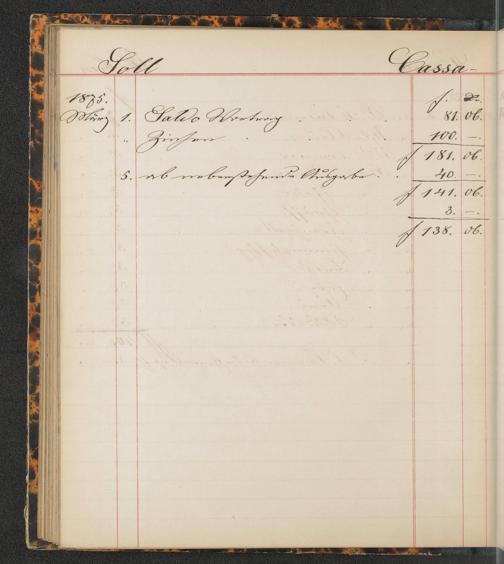 Soll Cassa-
1875.
März 1. Saldo Vortrag f. 81. 06.
" Zinsen 100. —.
f 181. 06.
5. ab nebenstehende Ausgabe 40 —.
f 141. 06.
3. —.
f 138. 06.